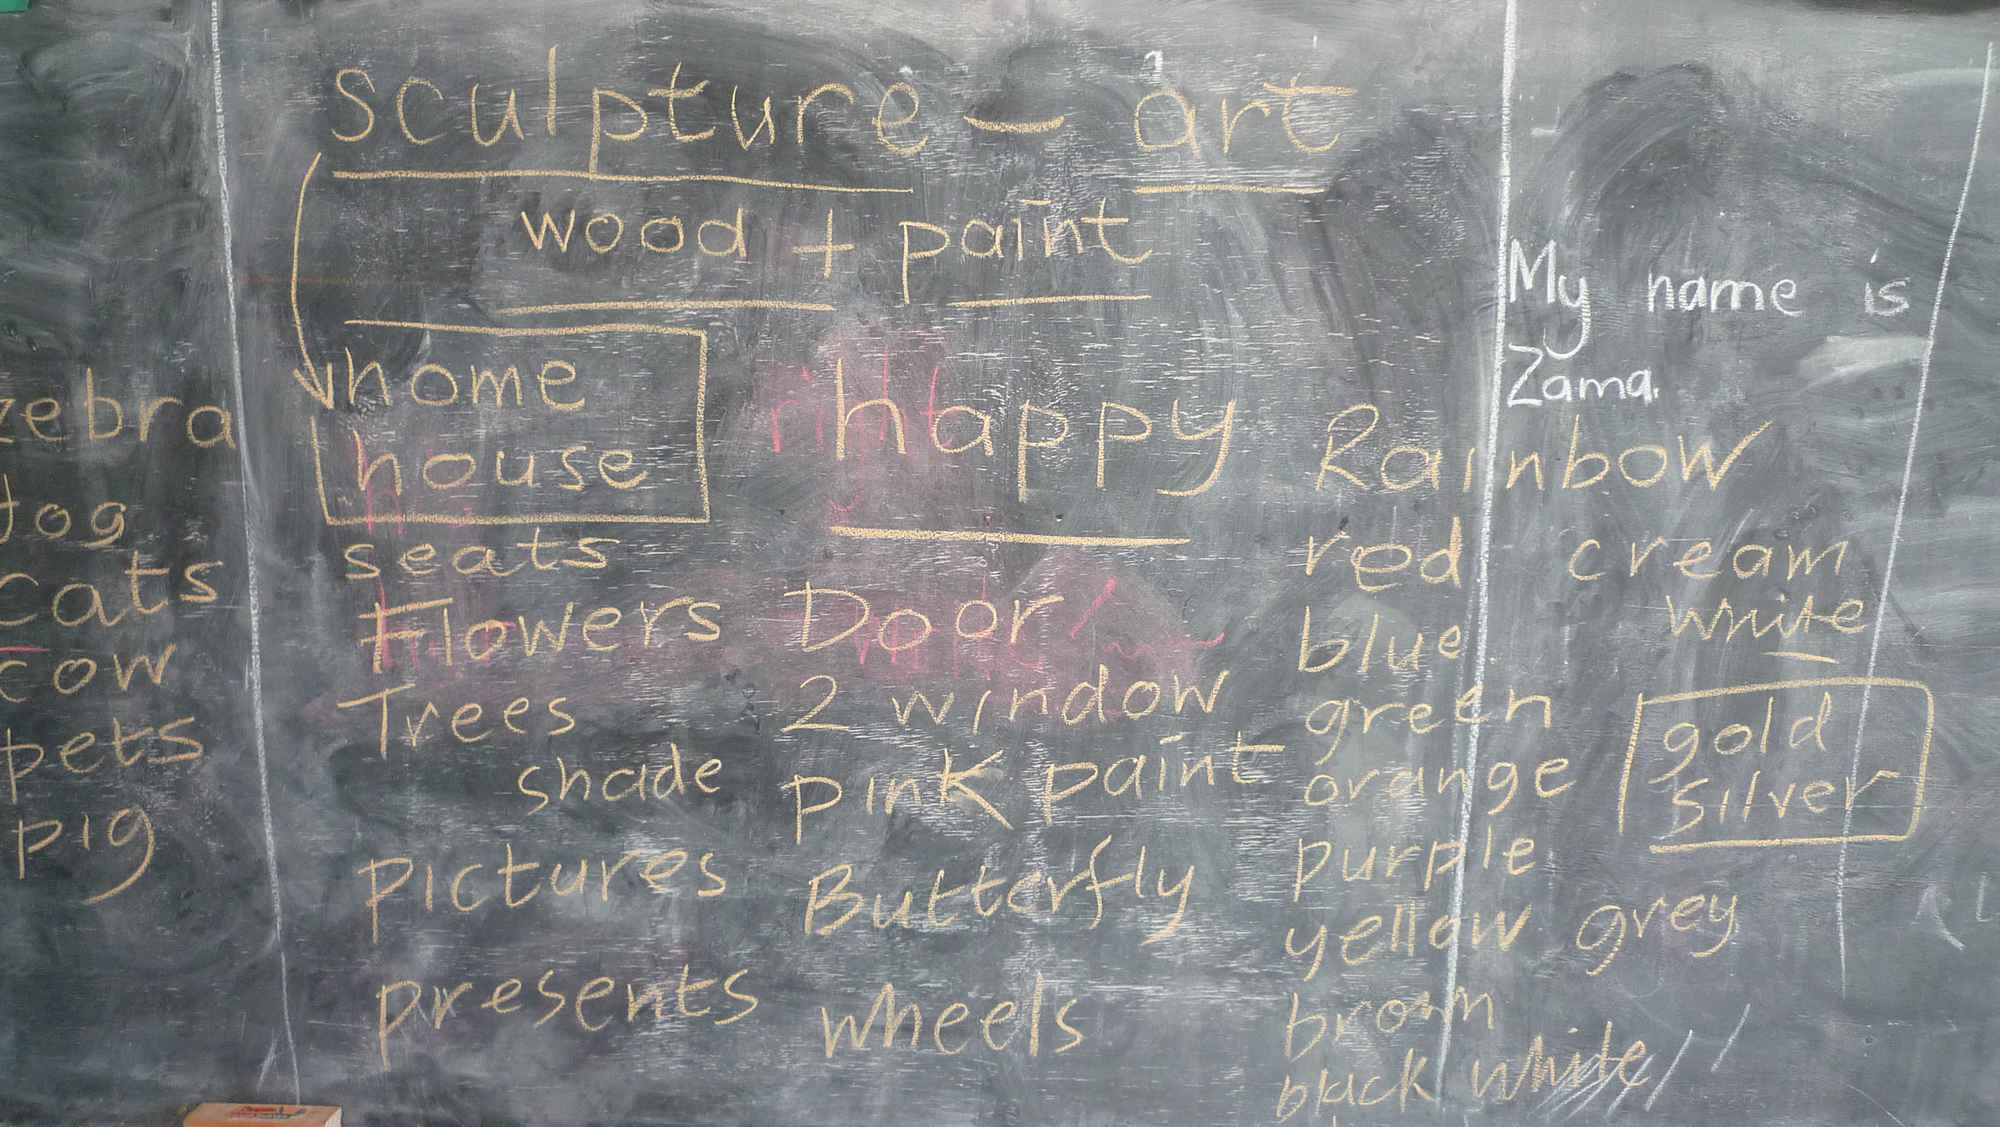 sculpture – art
wood + paint
home
house
seats
Flowers
Trees
shade
pictures
presents
happy
Door
2 window
pink paint
Butterfly
wheels
Rainbow
red cream
blue white
green
orange
gold
silver
purple
yellow grey
brown
black white
My name is
Zama.
zebra
dog
cats
cow
pets
pig